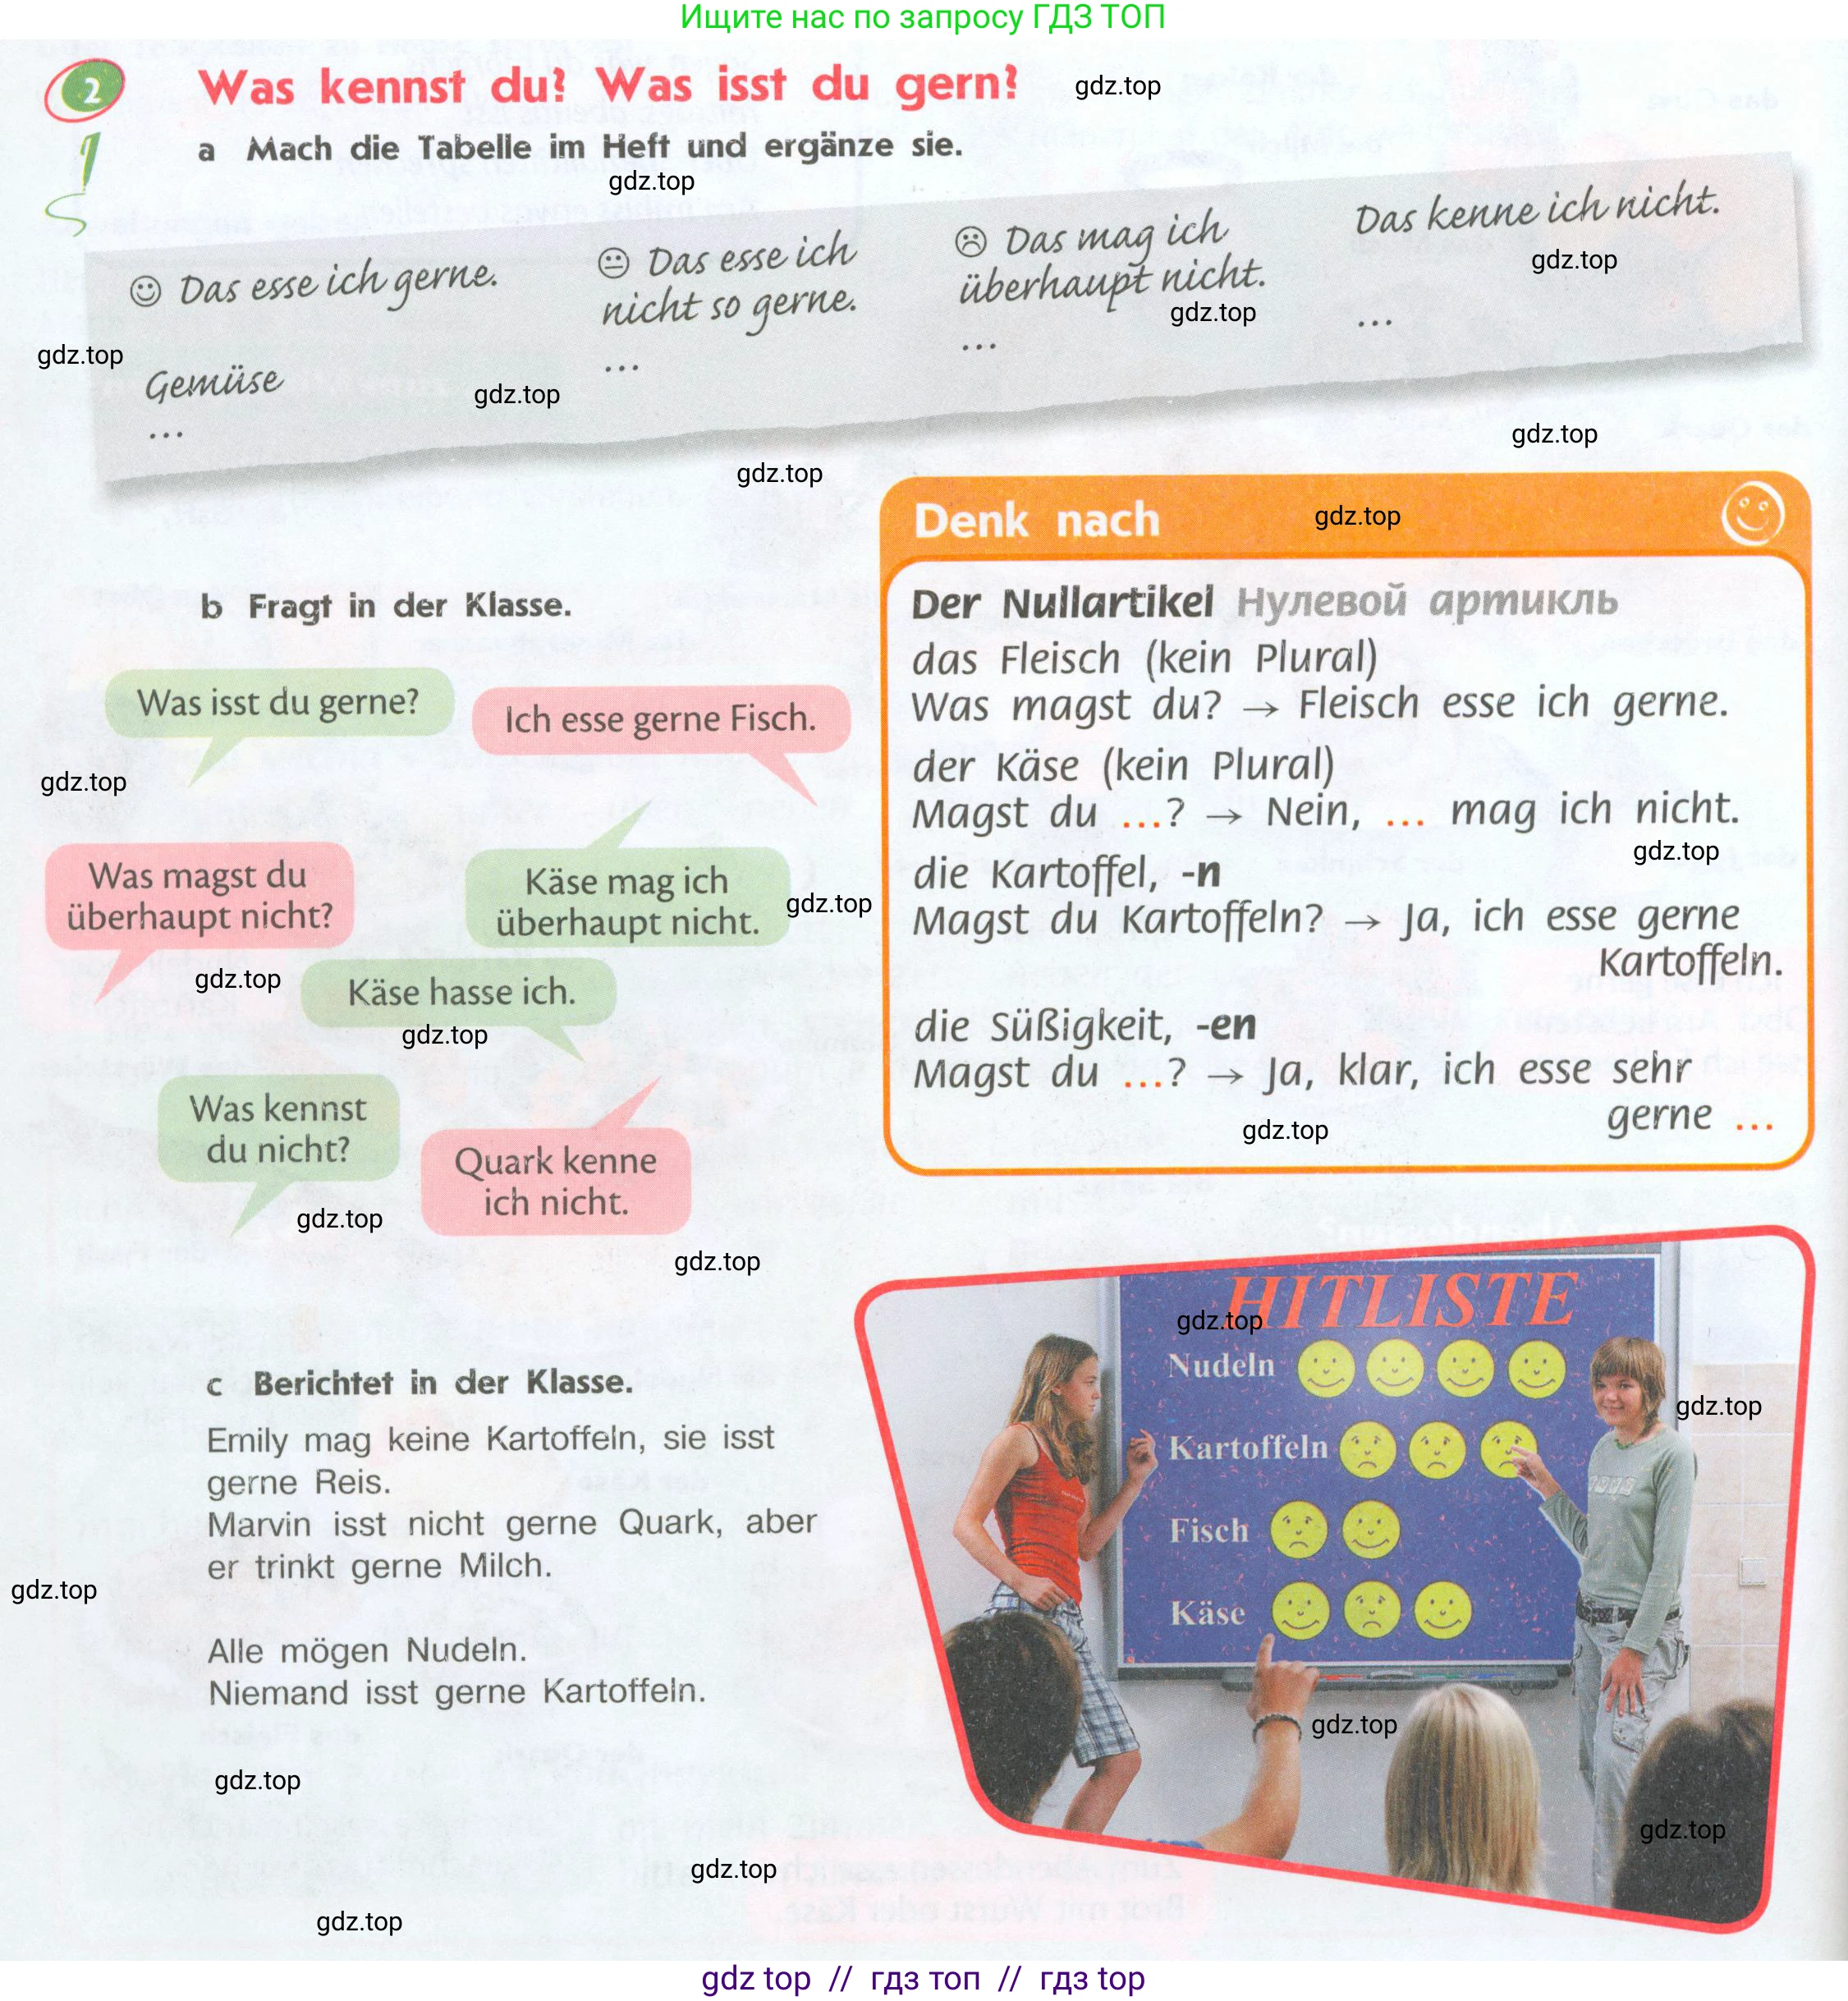 Ищите нас по запросу ГДЗ ТОП
2 Was kennst du? Was isst du gern?
gdz.top
a Mach die Tabelle im Heft und ergänze sie.
gdz.top
☺ Das esse ich gerne.
Gemüse
...
😐 Das esse ich
nicht so gerne.
...
☹ Das mag ich
überhaupt nicht.
...
Das kenne ich nicht.
...
gdz.top
gdz.top
gdz.top
gdz.top
gdz.top
gdz.top
b Fragt in der Klasse.
Was isst du gerne?
Ich esse gerne Fisch.
gdz.top
Was magst du
überhaupt nicht?
Käse mag ich
überhaupt nicht.
gdz.top
gdz.top
Käse hasse ich.
gdz.top
Was kennst
du nicht?
Quark kenne
ich nicht.
gdz.top
gdz.top
Denk nach
gdz.top
Der Nullartikel Нулевой артикль
das Fleisch (kein Plural)
Was magst du? → Fleisch esse ich gerne.
der Käse (kein Plural)
Magst du ...? → Nein, ... mag ich nicht.
gdz.top
die Kartoffel, -n
Magst du Kartoffeln? → Ja, ich esse gerne
Kartoffeln.
die Süßigkeit, -en
Magst du ...? → Ja, klar, ich esse sehr
gerne ...
gdz.top
c Berichtet in der Klasse.
Emily mag keine Kartoffeln, sie isst
gerne Reis.
Marvin isst nicht gerne Quark, aber
er trinkt gerne Milch.
gdz.top
Alle mögen Nudeln.
Niemand isst gerne Kartoffeln.
HITLISTE
gdz.top
Nudeln
gdz.top
Kartoffeln
Fisch
Käse
gdz.top
gdz.top
gdz.top
gdz.top
gdz.top
gdz top // гдз топ // гдз top